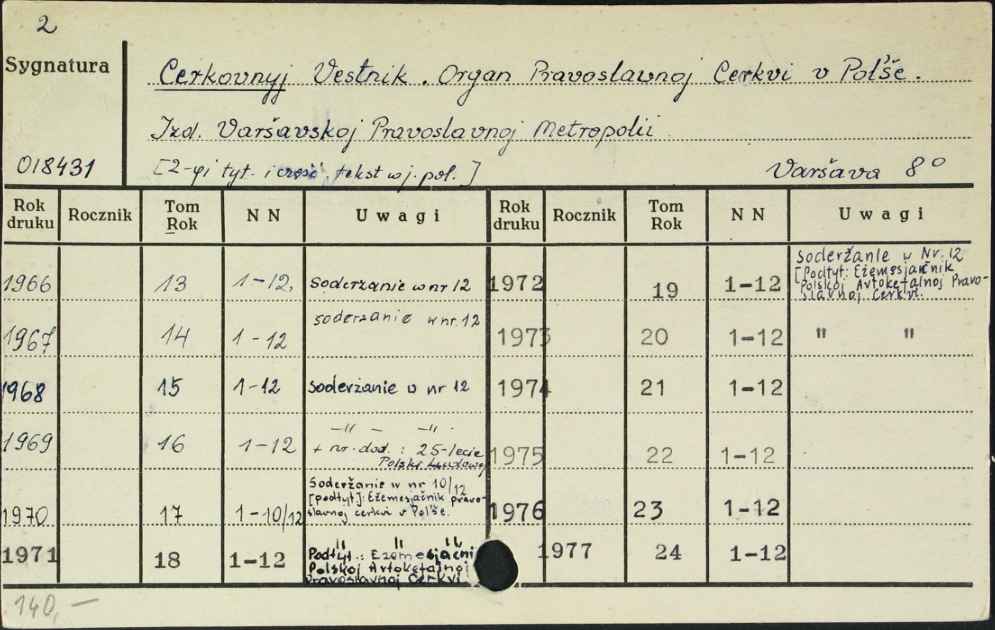 2
Sygnatura
Cerkovnyj Vestnik. Organ Pravoslavnoj Cerkvi v Polše.
Izd. Varšavskoj Pravoslavnoj Metropolii
018431 [2-gi tyt. i część tekst w j. pol.] Varšava 8°
Rok druku Rocznik Tom Rok N N Uwagi Rok druku Rocznik Tom Rok N N Uwagi
1966 13 1-12, soderzanie w nr 12
1967 14 1-12 soderzanie w nr. 12
1968 15 1-12 soderżanie w nr 12
1969 16 1-12 -"- -"-
+ nr. dod.: 25-lecie
Polski Ludowej
1970 17 1-10/12 Soderžanie w nr 10/12
[podtyt]: Ežemesjačnik pravo-
slavnoj cerkvi v Polše.
1971 18 1-12 " " "
Podtyt.: Ežemesjačni
Polskoj Avtokefalnoj
Pravoslavnoj Cerkvi
1972 19 1-12 Soderžanie v Nr. 12
[Podtyt: Ežemesjačnik
Polskoj Avtokefalnoj Pravo-
slavnoj Cerkvi.
1973 20 1-12 " "
1974 21 1-12
1975 22 1-12
1976 23 1-12
1977 24 1-12
140,-